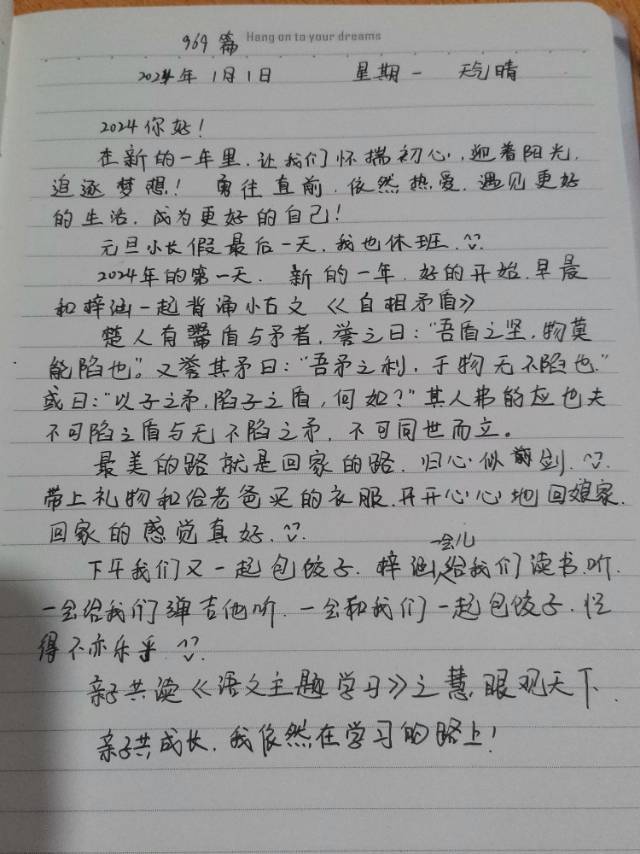 969篇 Hang on to your dreams
2024年1月1日 星期一 天气晴
2024你好!
在新的一年里,让我们怀揣初心,迎着阳光,
追逐梦想! 勇往直前,依然热爱,遇见更好
的生活,成为更好的自己!
元旦小长假最后一天,我也休班.
2024年的第一天,新的一年,好的开始,早晨
和梓涵一起背诵小古文《《自相矛盾》
楚人有鬻盾与矛者,誉之曰:“吾盾之坚,物莫
能陷也”。又誉其矛曰:“吾矛之利,于物无不陷也.”
或曰:“以子之矛,陷子之盾,何如?”其人弗能应也夫
不可陷之盾与无不陷之矛,不可同世而立。
最美的路就是回家的路,归心似箭.
带上礼物和给老爸买的衣服,开开心心地回娘家.
回家的感觉真好.
下午我们又一起包饺子,梓涵一会儿给我们读书听.
一会给我们弹吉他听,一会和我们一起包饺子,忙
得不亦乐乎.
亲子共读《语文主题学习》之慧眼观天下.
亲子共成长,我依然在学习的路上!